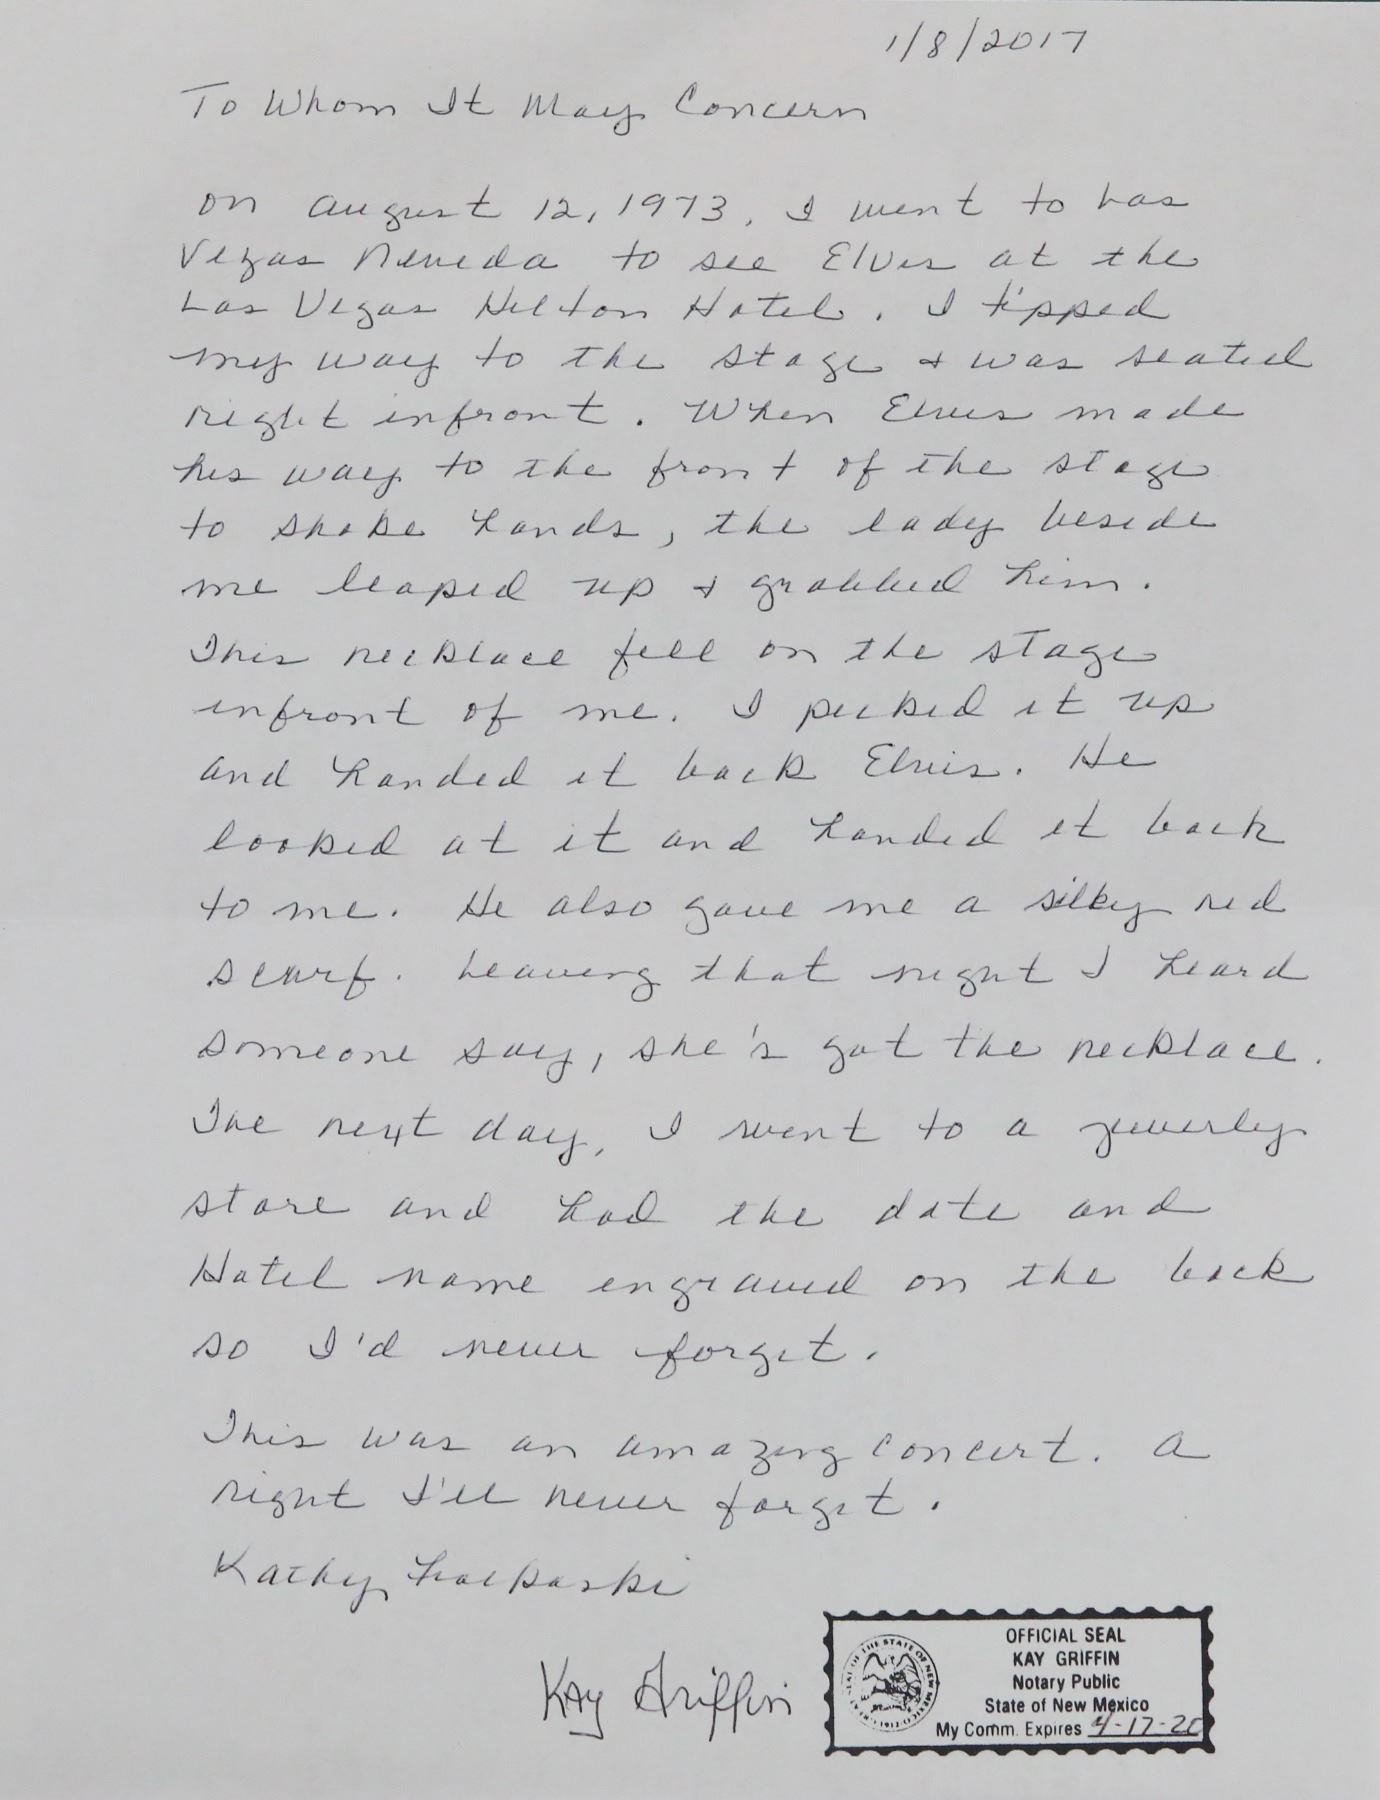 1/8/2017
To Whom It May Concern
on August 12, 1973, I went to Las
Vegas Neveda to see Elvis at the
Las Vegas Hilton Hotel. I tipped
my way to the stage & was seated
right infront. When Elvis made
his way to the front of the stage
to shake hands, the lady beside
me leaped up & grabbed him.
This necklace fell on the stage
infront of me. I picked it up
and handed it back Elvis. He
looked at it and handed it back
to me. He also gave me a silky red
scarf. Leaving that night I heard
someone say, she's got the necklace.
The next day, I went to a jewerly
store and had the date and
Hotel name engraved on the back
so I'd never forget.
This was an amazing concert. A
night I'll never forget.
Kathy
Kay Griffin
OFFICIAL SEAL
KAY GRIFFIN
Notary Public
State of New Mexico
My Comm. Expires 4-17-20